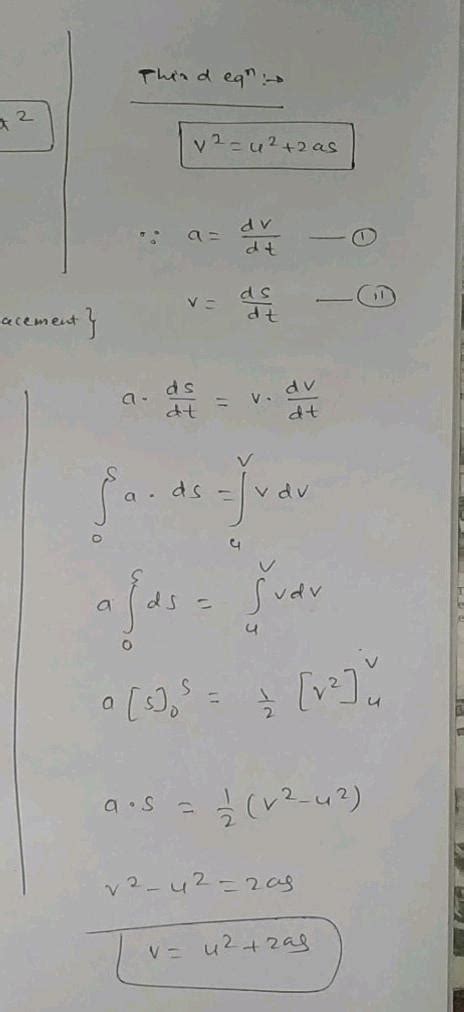 Third eqn :→
x²
v² = u² + 2as
∵ a = dv/dt — (I)
v = ds/dt — (II)
acement}
a · ds/dt = v · dv/dt
∫₀ˢ a · ds = ∫ᵤⱽ v dv
a ∫₀ˢ ds = ∫ᵤⱽ v dv
a [s]₀ˢ = 1/2 [v²]ᵤⱽ
a · s = 1/2 (v² - u²)
v² - u² = 2as
v = u² + 2as